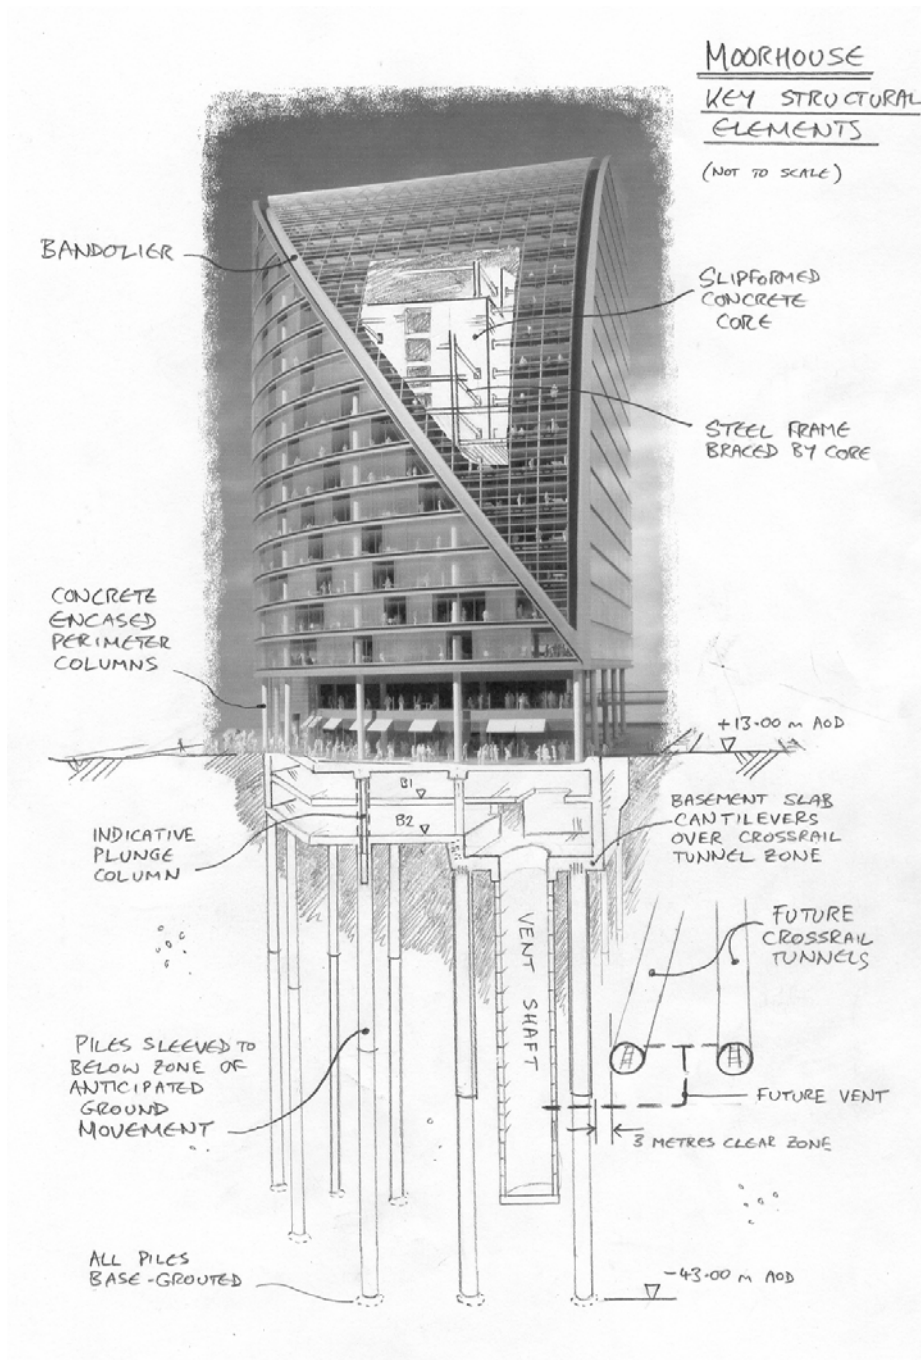 MOORHOUSE
KEY STRUCTURAL
ELEMENTS
(NOT TO SCALE)
BANDOLIER
SLIPFORMED
CONCRETE
CORE
STEEL FRAME
BRACED BY CORE
CONCRETE
ENCASED
PERIMETER
COLUMNS
+13.00 m AOD
B1
B2
BASEMENT SLAB
CANTILEVERS
OVER CROSSRAIL
TUNNEL ZONE
INDICATIVE
PLUNGE
COLUMN
VENT SHAFT
FUTURE
CROSSRAIL
TUNNELS
PILES SLEEVED TO
BELOW ZONE OF
ANTICIPATED
GROUND
MOVEMENT
FUTURE VENT
3 METRES CLEAR ZONE
ALL PILES
BASE-GROUTED
-43.00 m AOD